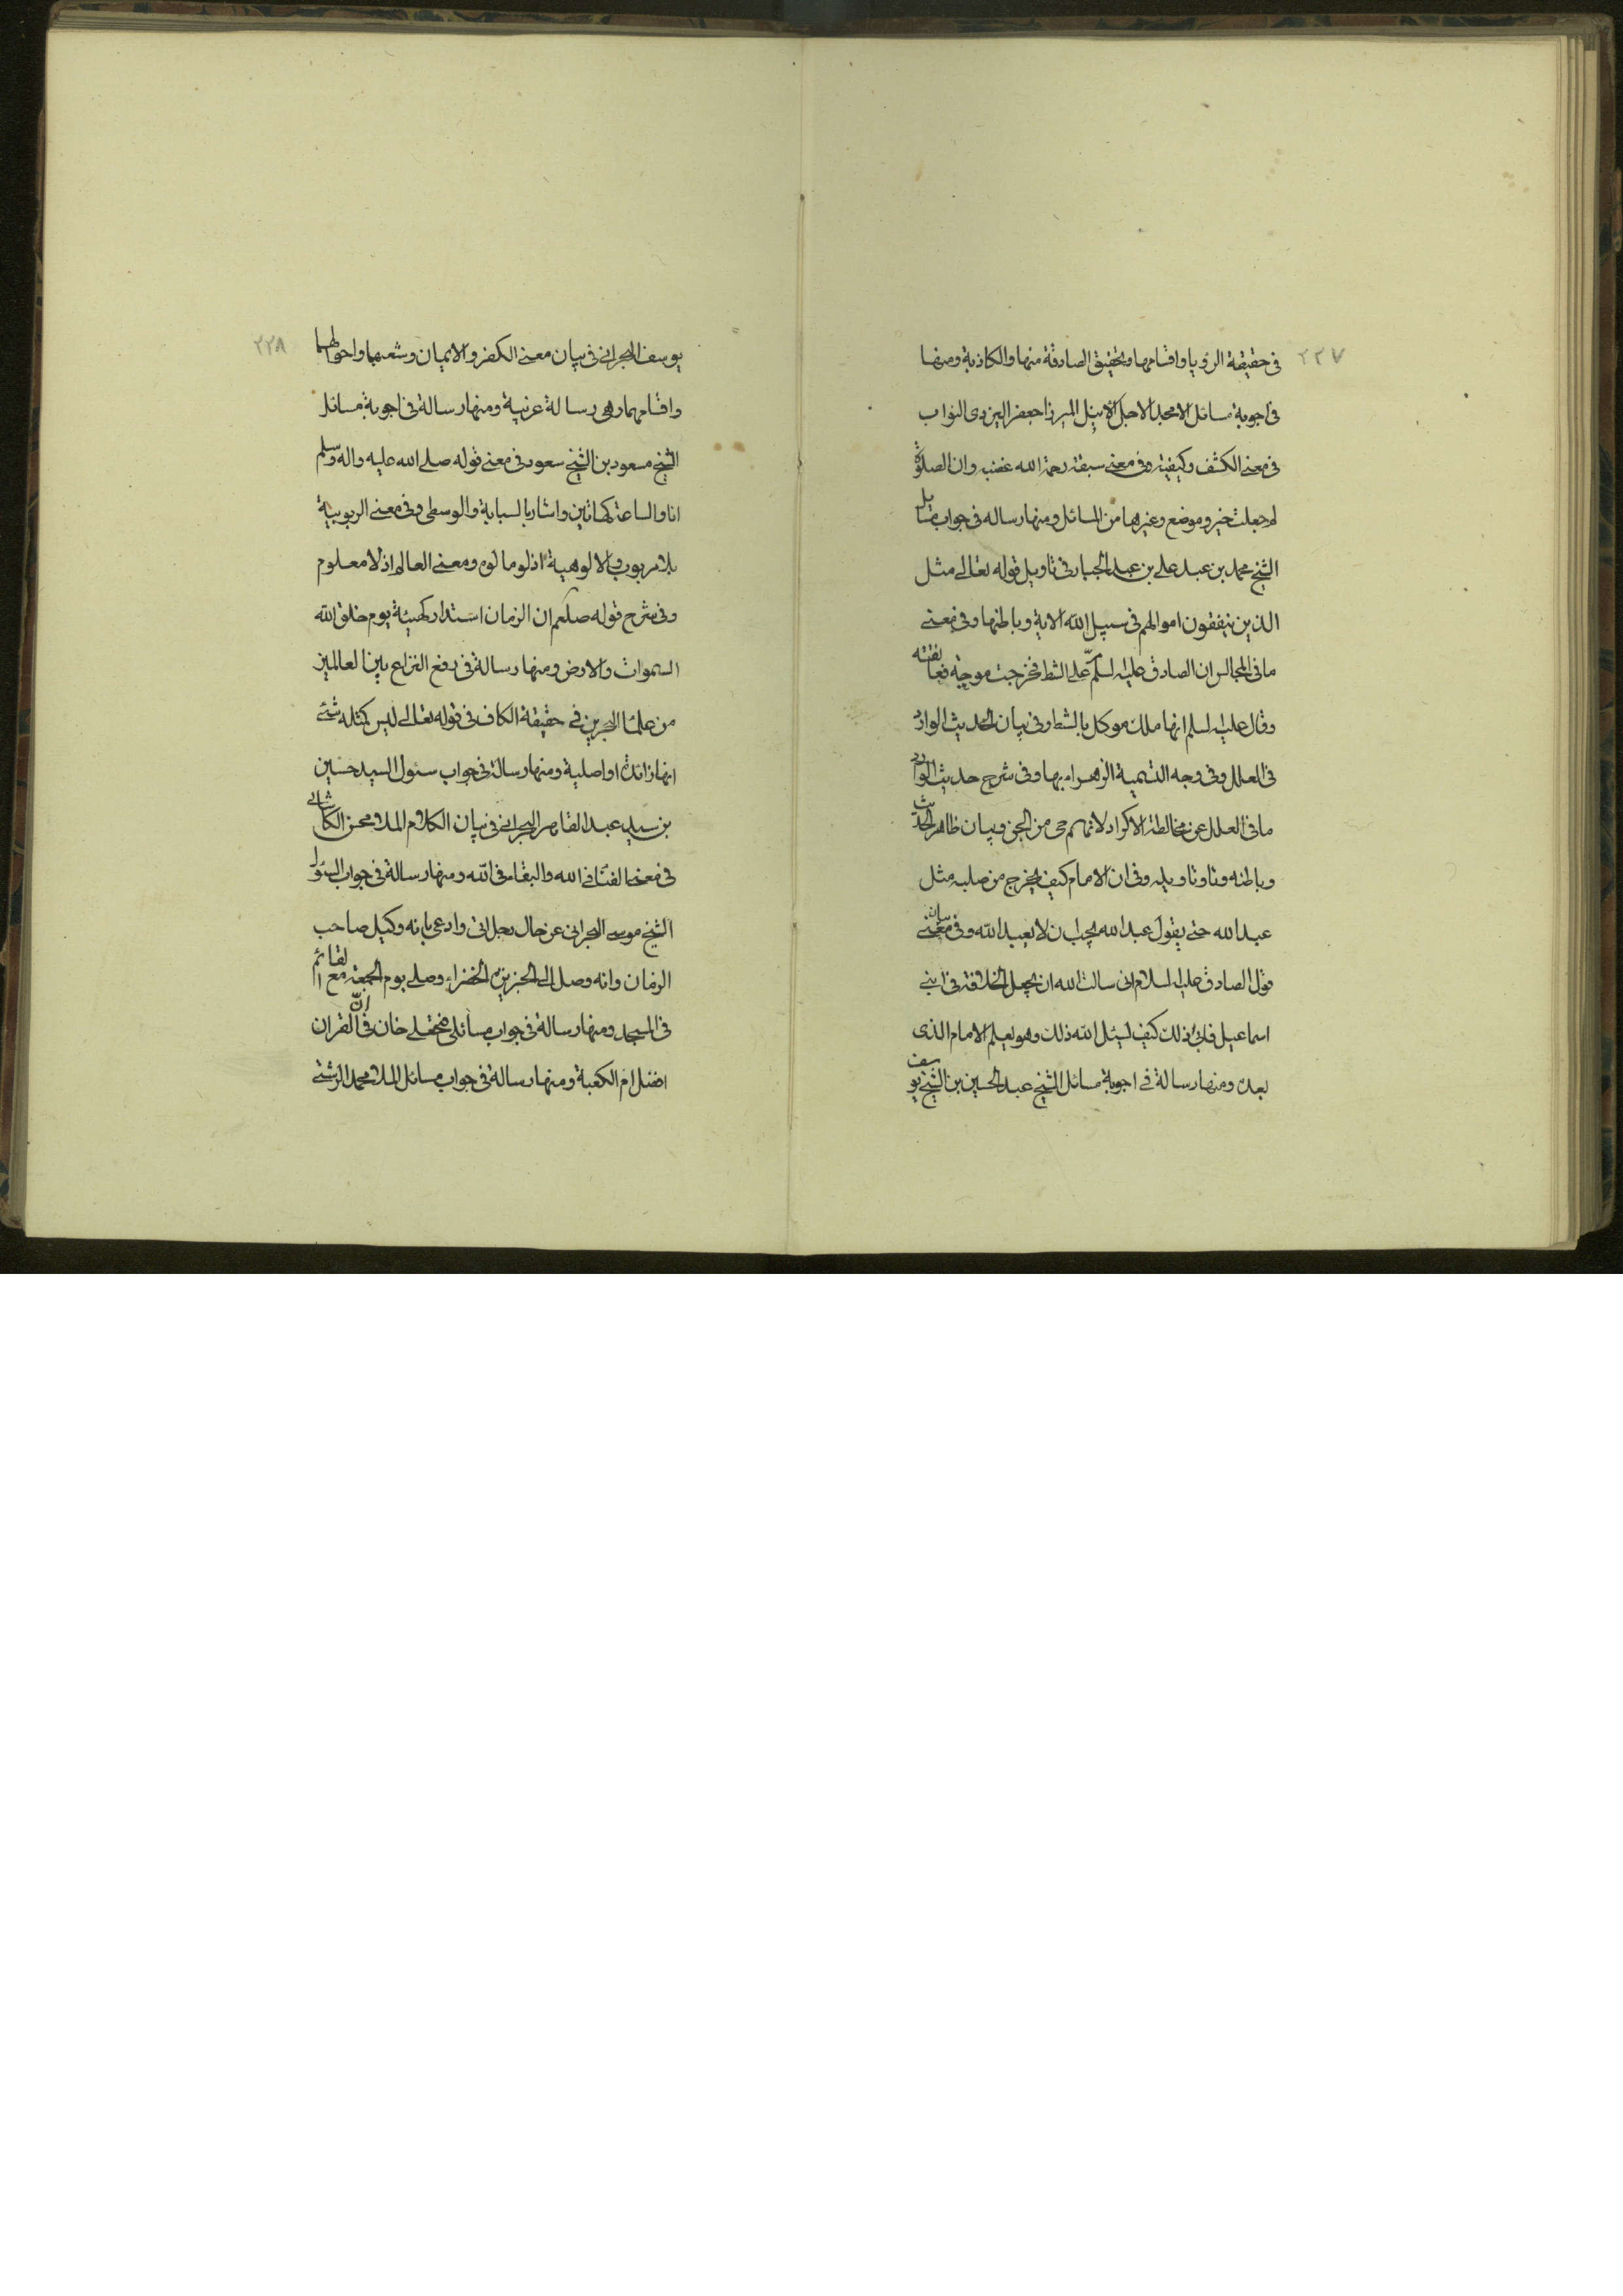 ٢٢٧
فى حقيقة الرؤيا واقسامها وتحقيق الصادقة منها والكاذبة ومنها
فى اجوبة مسائل الامجد الاجل الانبل الميرزا جعفر اليزدى النواب
فى معنى الكشف وكيفيته وفى معنى سبقت رحمة الله غضبه وان الصلوة
لم جعلت خير وموضع وغيرها من المسائل ومنها رساله فى جواب مسائل
الشيخ محمد بن عبد على بن عبد الجبار فى تاويل قوله تعالى مثل
الذين ينفقون اموالهم فى سبيل الله الاية وباطنها وفى معنى
ما فى المجالس ان الصادق عليه السلم مرّ على الشط فخرجت موجة فعانقته
وقال عليه السلم انها ملك موكل بالشط وفى بيان الحديث الوارد
فى العلل وفى وجه التسمية الزهراء بها وفى شرح حديث الوارد
ما فى العلل عن مخالطة الاكراد لانهم حى من الجن وبيان ظاهر الحديث
وباطنه وتاوتاويله وفى ان الامام كيف يخرج من صلبه مثل
عبد الله حتى يقول عبد الله يحب ان لا يعبد الله وفى بيان معنى
قول الصادق عليه السلام انى سالت الله ان يجعل الخلافة فى ابنى
اسماعيل فابى ذلك كيف يسئل الله ذلك وهو يعلم الامام الذى
بعده ومنها رسالة فى اجوبة مسائل الشيخ عبد الحسين بن الشيخ يوسف
٢٢٨
يوسف البحرانى فى بيان معنى الكفر والايمان وشعبهما واحوالهما
واقسامهما وهى رسالة غريبة ومنها رسالة فى اجوبة مسائل
الشيخ مسعود بن الشيخ سعود فى معنى قوله صلى الله عليه واله وسلم
انا والساعة كهاتين واشار بالسبابة والوسطى وفى معنى الربوبية
بلا مربوب والالوهية اذ لو مالوه ومعنى العالم اذ لا معلوم
وفى شرح قوله صلعم ان الزمان استدار كهيئة يوم خلق الله
السموات والارض ومنها رسالة فى رفع النزاع بين العالمين
من علماء البحرين فى حقيقة الكاف فى قوله تعالى ليس كمثله شئ
انها زائدة او اصلية ومنها رسالة فى جواب سئول السيد حسين
بن سيد عبد القاهر البحرانى فى بيان الكلام الملا محسن الكاشانى
فى معنى الفناء فى الله والبقاء فى الله ومنها رسالة فى جواب السئول
الشيخ موسى البحرانى عن حال رجل اتى وادعى بانه وكيل صاحب
الزمان وانه وصل الى الجزيرة الخضراء وصلى يوم الجمعة مع القائم
فى المسجد ومنها رسالة فى جواب مسائل فتحعلى خان فى انّ القران
افضل ام الكعبة ومنها رسالة فى جواب مسائل الملا محمد الرشتى